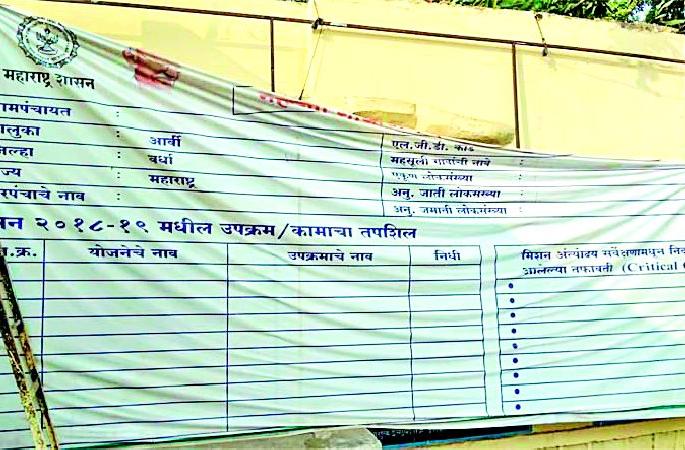 महाराष्ट्र शासन
ामपंचायत :
ालुका : आर्वी
जल्हा : वर्धा
ज्य : महाराष्ट्र
रपंचाचे नाव :
एल.जी.डी. कोड
महसूली गावांची नावे :
एकूण लोकसंख्या
अनु. जाती लोकसंख्या :
अनु. जमाती लोकसंख्या :
सन २०१८-१९ मधील उपक्रम/कामाचा तपशिल
अ.क्र. योजनेचे नाव उपक्रमाचे नाव निधी
मिशन अंत्योदय सर्वेक्षणामधुन नि
आलेल्या तफावती (Critical